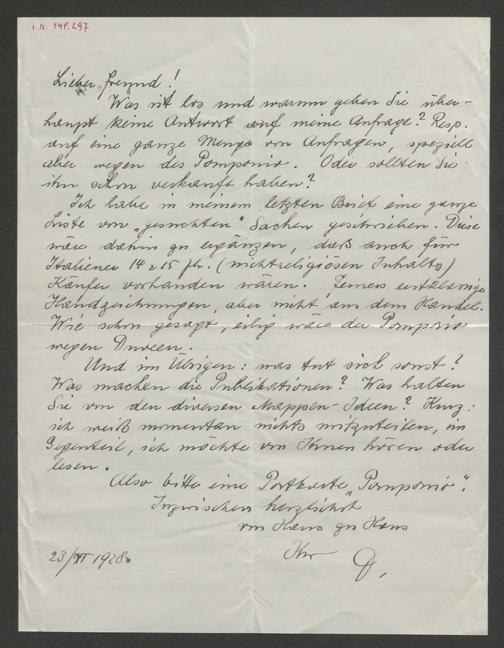 I.N. 149.297
Lieber Freund!
Was ist los und warum geben Sie über-
haupt keine Antwort auf meine Anfrage? Resp.
auf eine ganze Menge von Anfragen, speziell
aber wegen des Pomponio. Oder sollten Sie
ihn schon verkauft haben?
Ich habe in meinem letzten Brief eine ganze
Liste von „gesuchten" Sachen geschrieben. Diese
wäre dahin zu ergänzen, daß auch für
Italiener 14 u 15 Jh. (nichtreligiösen Inhalts)
Käufer vorhanden wären. Ferner erstklassige
Handzeichnungen, aber nicht aus dem Handel.
Wie schon gesagt, eilig wäre der Pomponio
wegen Duveen.
Und im Übrigen: was tut sich sonst?
Was machen die Publikationen? Was halten
Sie von den diversen Mappen-Ideen? Kurz:
ich weiß momentan nichts mitzuteilen, im
Gegenteil, ich möchte von Ihnen hören oder
lesen.
Also bitte eine Postkarte „Pomponio".
Inzwischen herzlichst
von Haus zu Haus
Ihr D.
23/ 1928.